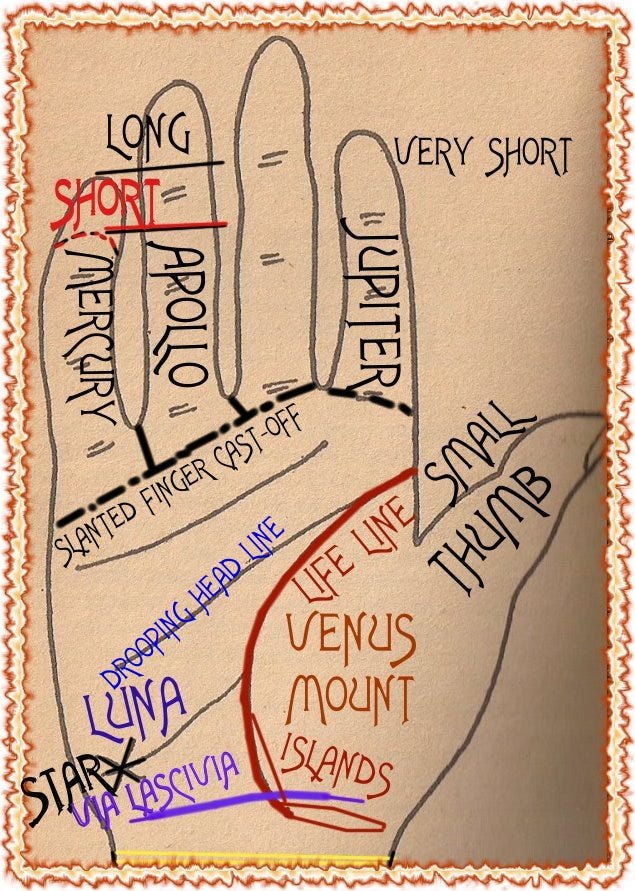 LONG
VERY SHORT
SHORT
MERCURY
APOLLO
JUPITER
SLANTED FINGER CAST-OFF
SMALL
THUMB
LIFE LINE
DROOPING HEAD LINE
VENUS
MOUNT
LUNA
ISLANDS
STAR
VIA LASCIVIA